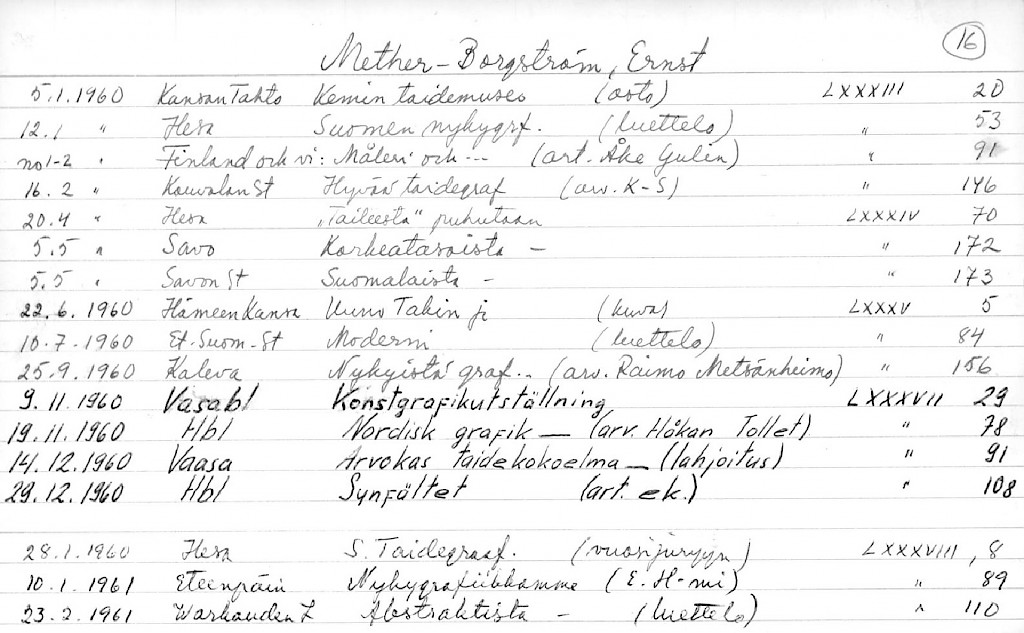 16
Mether-Borgström, Ernst
5.1.1960 Kansan Tahto Kemin taidemuseo (osto) LXXXIII 20
12.1 " Hesa Suomen nykygrf. (luettelo) " 53
no 1-2 " Finland och vi: Måleri och --- (art. Åke Gulin) " 91
16.2 " Kouvolan St Hyvää taidegraf (arv. K-S) " 146
20.4 " Hesa "Taiteesta" puhutaan LXXXIV 70
5.5 " Savo Korkeatasoista - " 172
5.5 " Savon St Suomalaista - " 173
22.6.1960 Hämeen Kansa Uuno Takin je (kuva) LXXXV 5
10.7-1960 Et. Suom-St Moderni (luettelo) " 84
25.9.1960 Kaleva Nykyistä graf.. (arv. Raimo Metsänheimo) " 156
9.11.1960 Vasabl Konstgrafikutställning LXXXVII 29
19.11.1960 Hbl Nordisk grafik — (arv. Håkan Tollet) " 78
14.12.1960 Vaasa Arvokas taidekokoelma - (lahjoitus) " 91
29.12.1960 Hbl Synfältet (art. ek.) " 108
28.1.1960 Hesa S. Taidegraaf. (vuosijuryyn) LXXXVIII, 8
10.1.1961 Eteenpäin Nykygrafiikkamme (E. H-mi) " 89
23.2.1961 Warkauden L Abstraktista - (luettelo) " 110